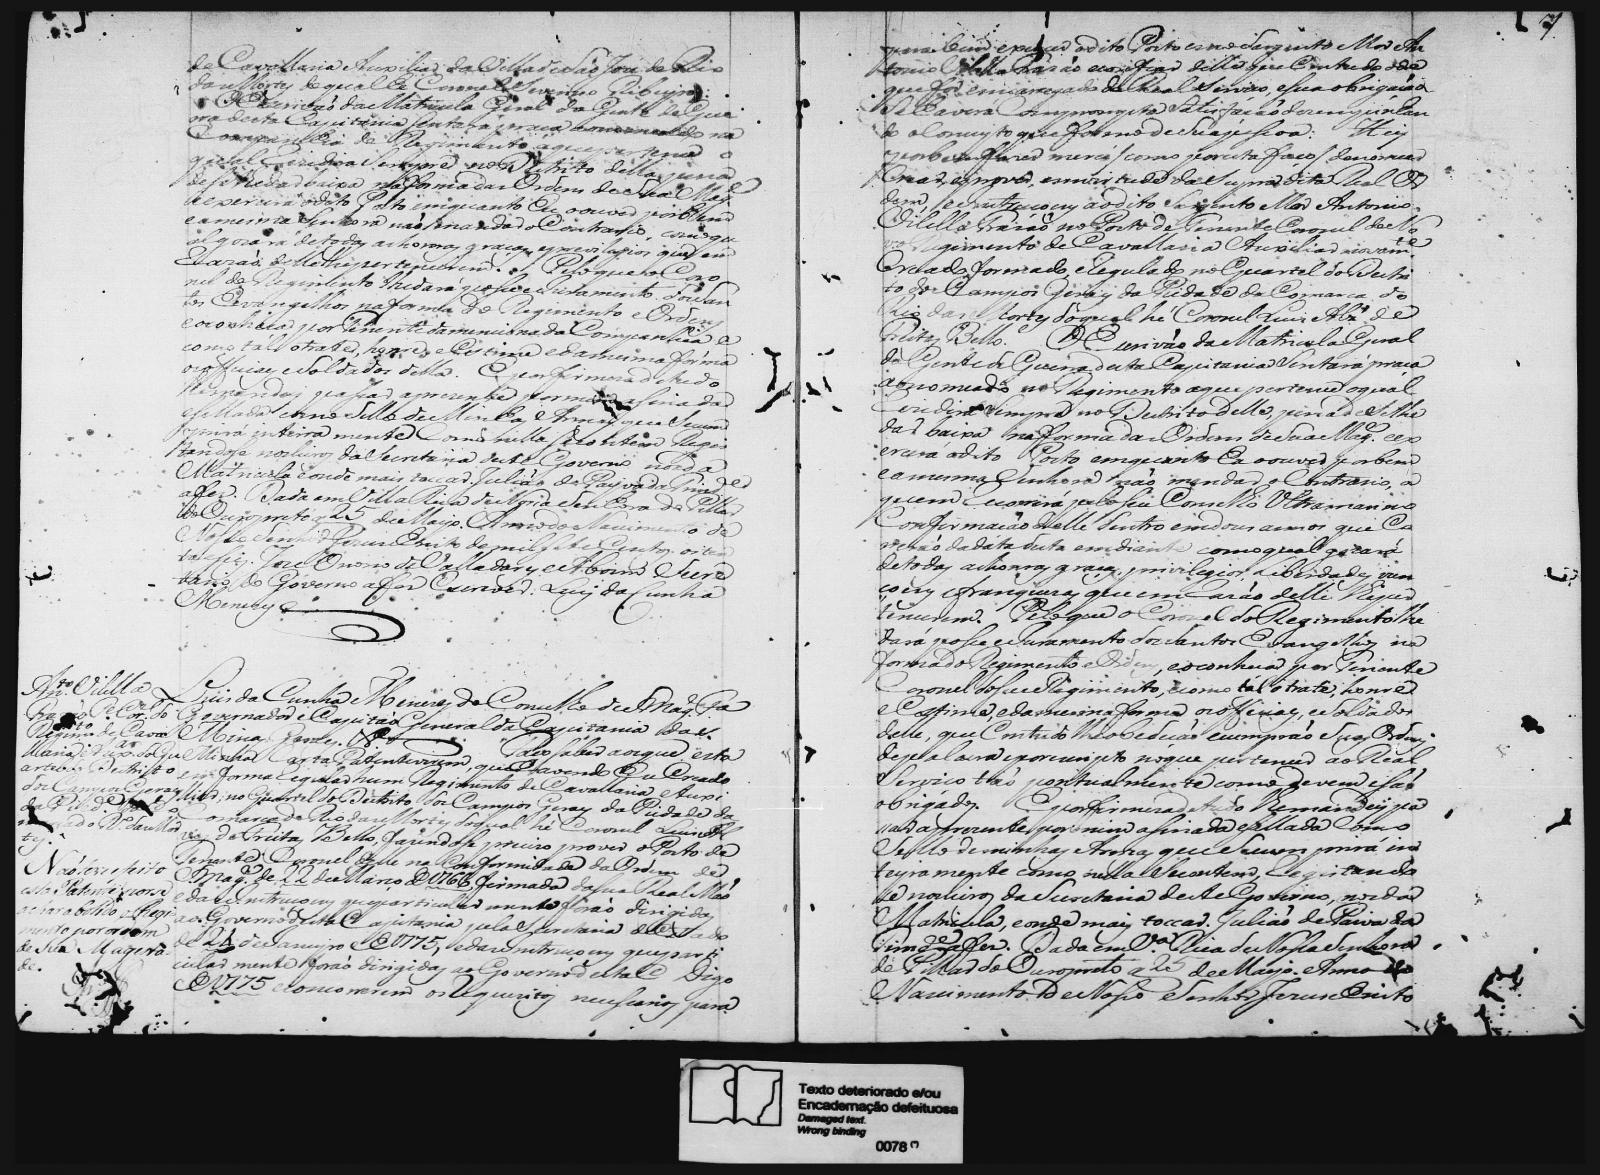 de Cavallaria Auxiliar da Villa de São José do Rio
das Mortes de que hé Coronel Severino Ribeiro.
O Escrivão da Matricula Geral da Gente de Gue
rra desta Capitania sentará praça ao nomeado na
Companhia do Regimento a que pertence o
qual rezidirá sempre no Destrito della pena
de se lhe dar baixa na forma das Ordens de Sua Mag.e
e exercerá o dito Posto emquanto Eu o ouver por bem
e a mesma Senhora não mandar o Contrario, com o qu
al gozará de todas as honras graças e previlegios que em
Razão delle lhe pertencerem. Pelo que o Coro
nel do Regimento lhe dará posse e juramento dos San
tos Evangelhos na forma do Regimento e Ordens
e o conheça por Tenente da mencionada Companhia e
como tal o trate, honre, e estime e da mesma forma
os officiaes e Soldados della. E por firmeza de tudo
lhe mandei passar a prezente por mim asinada
e sellada com o Sello de Minhas Armas que se cum
prirá inteiramente como nella se contem Regis
tandose nos livros da Secretaria deste Governo nos da
Matricula e onde mais tocar. Julião de Payva da Fon.ca
a fez. Dada em Villa Rica de Nossa Senhora do Pillar
do Ouro preto a 25 de Mayo. Anno do Nascimento de
Nosso Senhor Jesus Christo de mil sete Centos oiten
ta e seis. Joze Onorio de Valladares e Aboim Secre
tario do Governo a fez Escrever. Luis da Cunha
Menezes
An.to Vilella
Frazão T.e Cor.el do
Regim.to de Cava
llaria Aux.ar do Qu
artel do Destrito
dos Campos Geraes
da Pied.e
do R.o das Mor
tes.
Não teve efeito
esta Patente por se
achar abolido o Regi
mento por ordem
de Sua Magesta
de.
Luis da Cunha e Menezes, do Conselho de S. Mag.e F.a
Governador e Capitão General da Capitania das
Minas Geraes. &.a Faço saber aos que esta
Minha Carta Patente virem, que havendo Eu Creado
em forma e regulado hum Regimento de Cavallaria Auxi
liar, no Quartel do Destrito dos Campos Geraes da Piedade da
Comarca do Rio das Mortes do qual hé Coronel Luis Al
ves de Freitas Bello, fazendose precizo prover o Posto de
Tenente Coronel delle na Conformidade da Ordem de
S. Mag.e de 22 de Março D 1766 firmada da sua Real Mão
e das instrucoens que particularmente forão dirigidas
ao Governo desta Capitania pela Secretaria de Estado
de 24 de Janeiro D 1775, e das instrucoens que parti
cularmente forão dirigidas ao Governo desta C Digo
D 1775 e concorrerem os requezitos necessarios para
7
para bem exercer o dito Posto em o Sargento Mor An
tonio Vilella Frazão e confiar delle que Em tudo o de
que for encarregado do Real Serviço, e sua obrigação
Se haverá Com prompta Satisfação dezempenhan
do o Conceyto que formo de sua pessoa: Hey
por bem fazer merce (como por esta faço) de nomear
Crear, e prover, em virtude da Supra dita Real Or
dem, e instrucoens ao dito Sargento Mor Antonio
Vilella Frazão no Posto de Tenente Coronel do No
vo Regimento de Cavallaria Auxiliar novam.te
Creado, formado, e Regulado no Quartel do Destri
to dos Campos Geraes da Piedade da Comarca do
Rio das Mortes do qual hé Coronel Luis Alz' de
Freitas Bello. O Escrivão da Matricula Geral
da Gente de Guerra desta Capitania Sentará praça
ao nomeado no Regimento a que pertence o qual
rezidirá Sempre no Destrito delle, pena de se lhe
dar baixa na forma das Ordens de Sua Mag.e e ex
ercerá o dito Posto emquanto Eu o ouver por bem
e a mesma Senhora não mandar o Contrario, a
quem recorrerá pelo seu Conselho Ultramarino
Confirmação delle dentro em dous annos que Co
rrerão da data desta em diante com o qual gozará
de todas as honras graças, privilegios, Liberdades, izen
coens e franquezas que em razão delle lhe per
tencerem. Pelo que o Coronel do Regimento lhe
dará posse e Juramento dos Santos Evangelhos na
forma do Regimento e Ordens, e o conheça por Tenente
Coronel do seu Regimento, e como tal o trate, honre
e Estime, e da mesma forma os officiaes, e Soldados
delle, que Em tudo lhe obedeção e cumprão Suas Ordens
de palavra e por escripto no que pertencer ao Real
Serviço tão pontualmente como devem e são
obrigados. E por firmeza de tudo lhe mandei pas
sar a prezente por mim asinada e sellada Com o
Sello de minhas Armas, que se cumprirá in
teyramente como nella se contem, Registando
se nos livros da Secretaria deste Governo, nos da
Matricula, e onde mais toccar. Julião de Paiva da
Fon.ca a fez. Dada em V.a Rica de Nossa Senhora
do Pillar do Ouro preto a 25 de Mayo. Anno do
Nascimento De Nosso Senhor Jezus Christo
Texto deteriorado e/ou
Encadernação defeituosa
Damaged text.
Wrong binding
0078